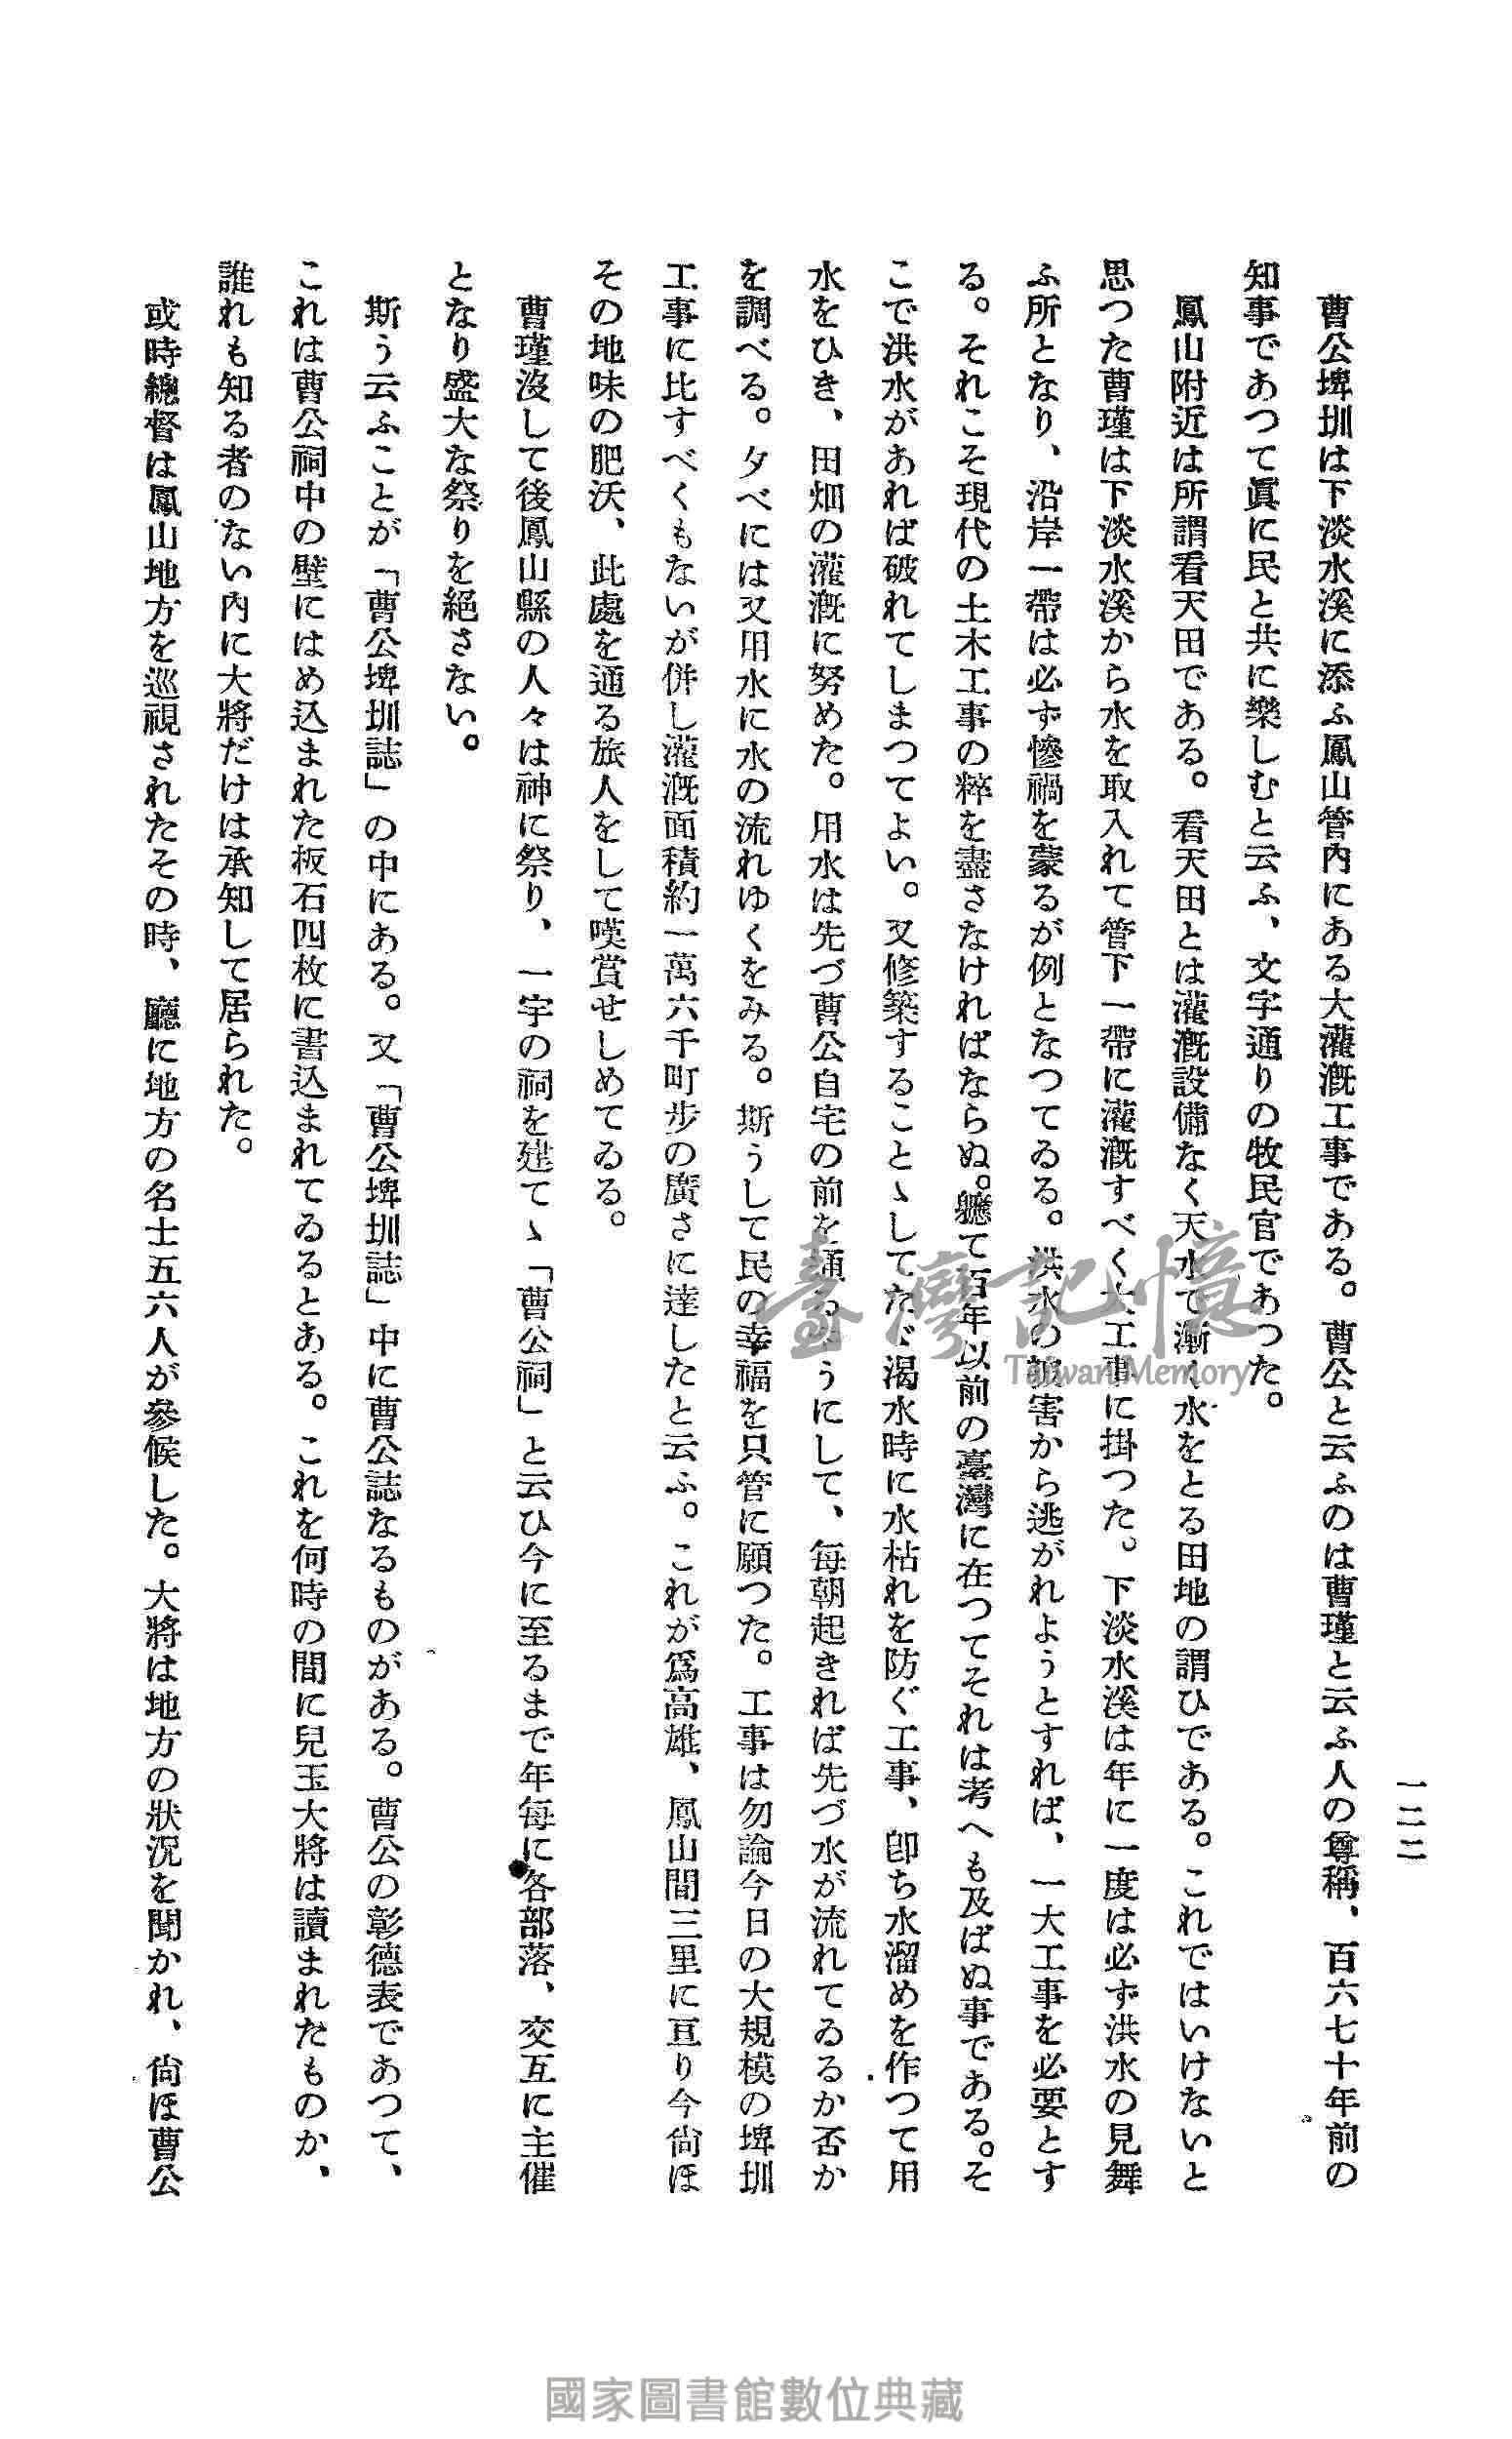 一二二
曹公埤圳は下淡水溪に添ふ鳳山管內にある大灌漑工事である。曹公と云ふのは曹瑾と云ふ人の尊稱、百六七十年前の
知事であつて眞に民と共に樂しむと云ふ、文字通りの牧民官であつた。
鳳山附近は所謂看天田である。看天田とは灌漑設備なく天水で漸く水をとる田地の謂ひである。これではいけないと
思つた曹瑾は下淡水溪から水を取入れて管下一帶に灌漑すべく大工事に掛つた。下淡水溪は年に一度は必ず洪水の見舞
ふ所となり、沿岸一帶は必ず慘禍を蒙るが例となつてゐる。洪水の被害から逃がれようとすれば、一大工事を必要とす
る。それこそ現代の土木工事の粹を盡さなければならぬ。軈て百年以前の臺灣に在つてそれは考へも及ばぬ事である。そ
こで洪水があれば破れてしまつてよい。又修築することゝしてたゞ渴水時に水枯れを防ぐ工事、卽ち水溜めを作つて用
水をひき、田畑の灌漑に努めた。用水は先づ曹公自宅の前を通るやうにして、每朝起きれば先づ水が流れてゐるか否か
を調べる。夕べには又用水に水の流れゆくをみる。斯うして民の幸福を只管に願つた。工事は勿論今日の大規模の埤圳
工事に比すべくもないが併し灌漑面積約一萬六千町步の廣さに達したと云ふ。これが爲高雄、鳳山間三里に亘り今尙ほ
その地味の肥沃、此處を通る旅人をして嘆賞せしめてゐる。
曹瑾沒して後鳳山縣の人々は神に祭り、一宇の祠を建てゝ「曹公祠」と云ひ今に至るまで年每に各部落、交互に主催
となり盛大な祭りを絕さない。
斯う云ふことが「曹公埤圳誌」の中にある。又「曹公埤圳誌」中に曹公誌なるものがある。曹公の彰德表であつて、
これは曹公祠中の壁にはめ込まれた板石四枚に書込まれてゐるとある。これを何時の間に兒玉大將は讀まれたものか、
誰れも知る者のない內に大將だけは承知して居られた。
或時總督は鳳山地方を巡視されたその時、廳に地方の名士五六人が參候した。大將は地方の狀況を聞かれ、尙ほ曹公
臺灣記憶
Taiwan Memory
國家圖書館數位典藏